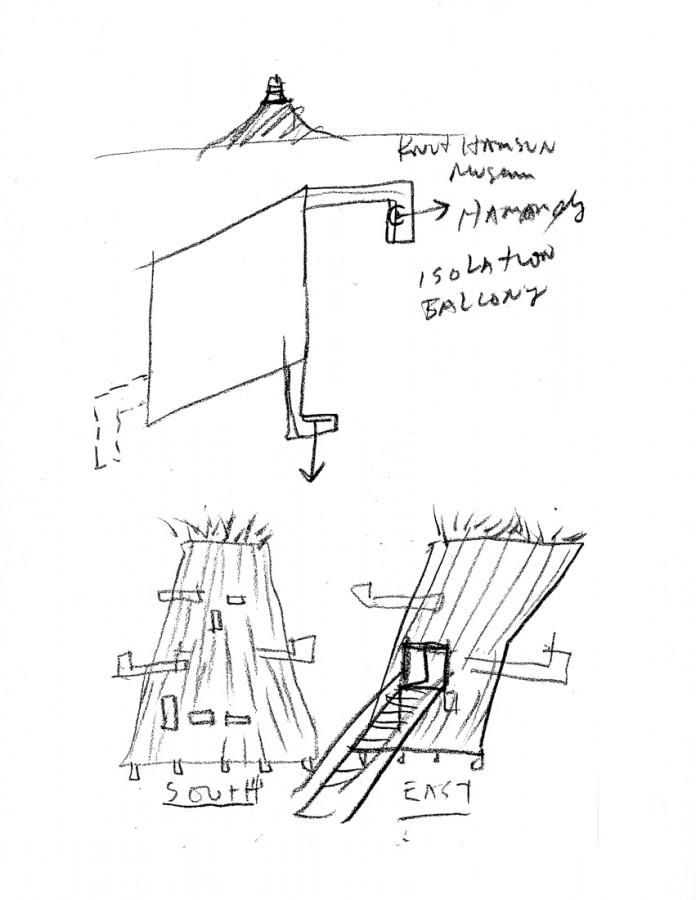 KNUT HAMSUN
MUSEUM
ISOLATION
BALCONY
SOUTH
EAST